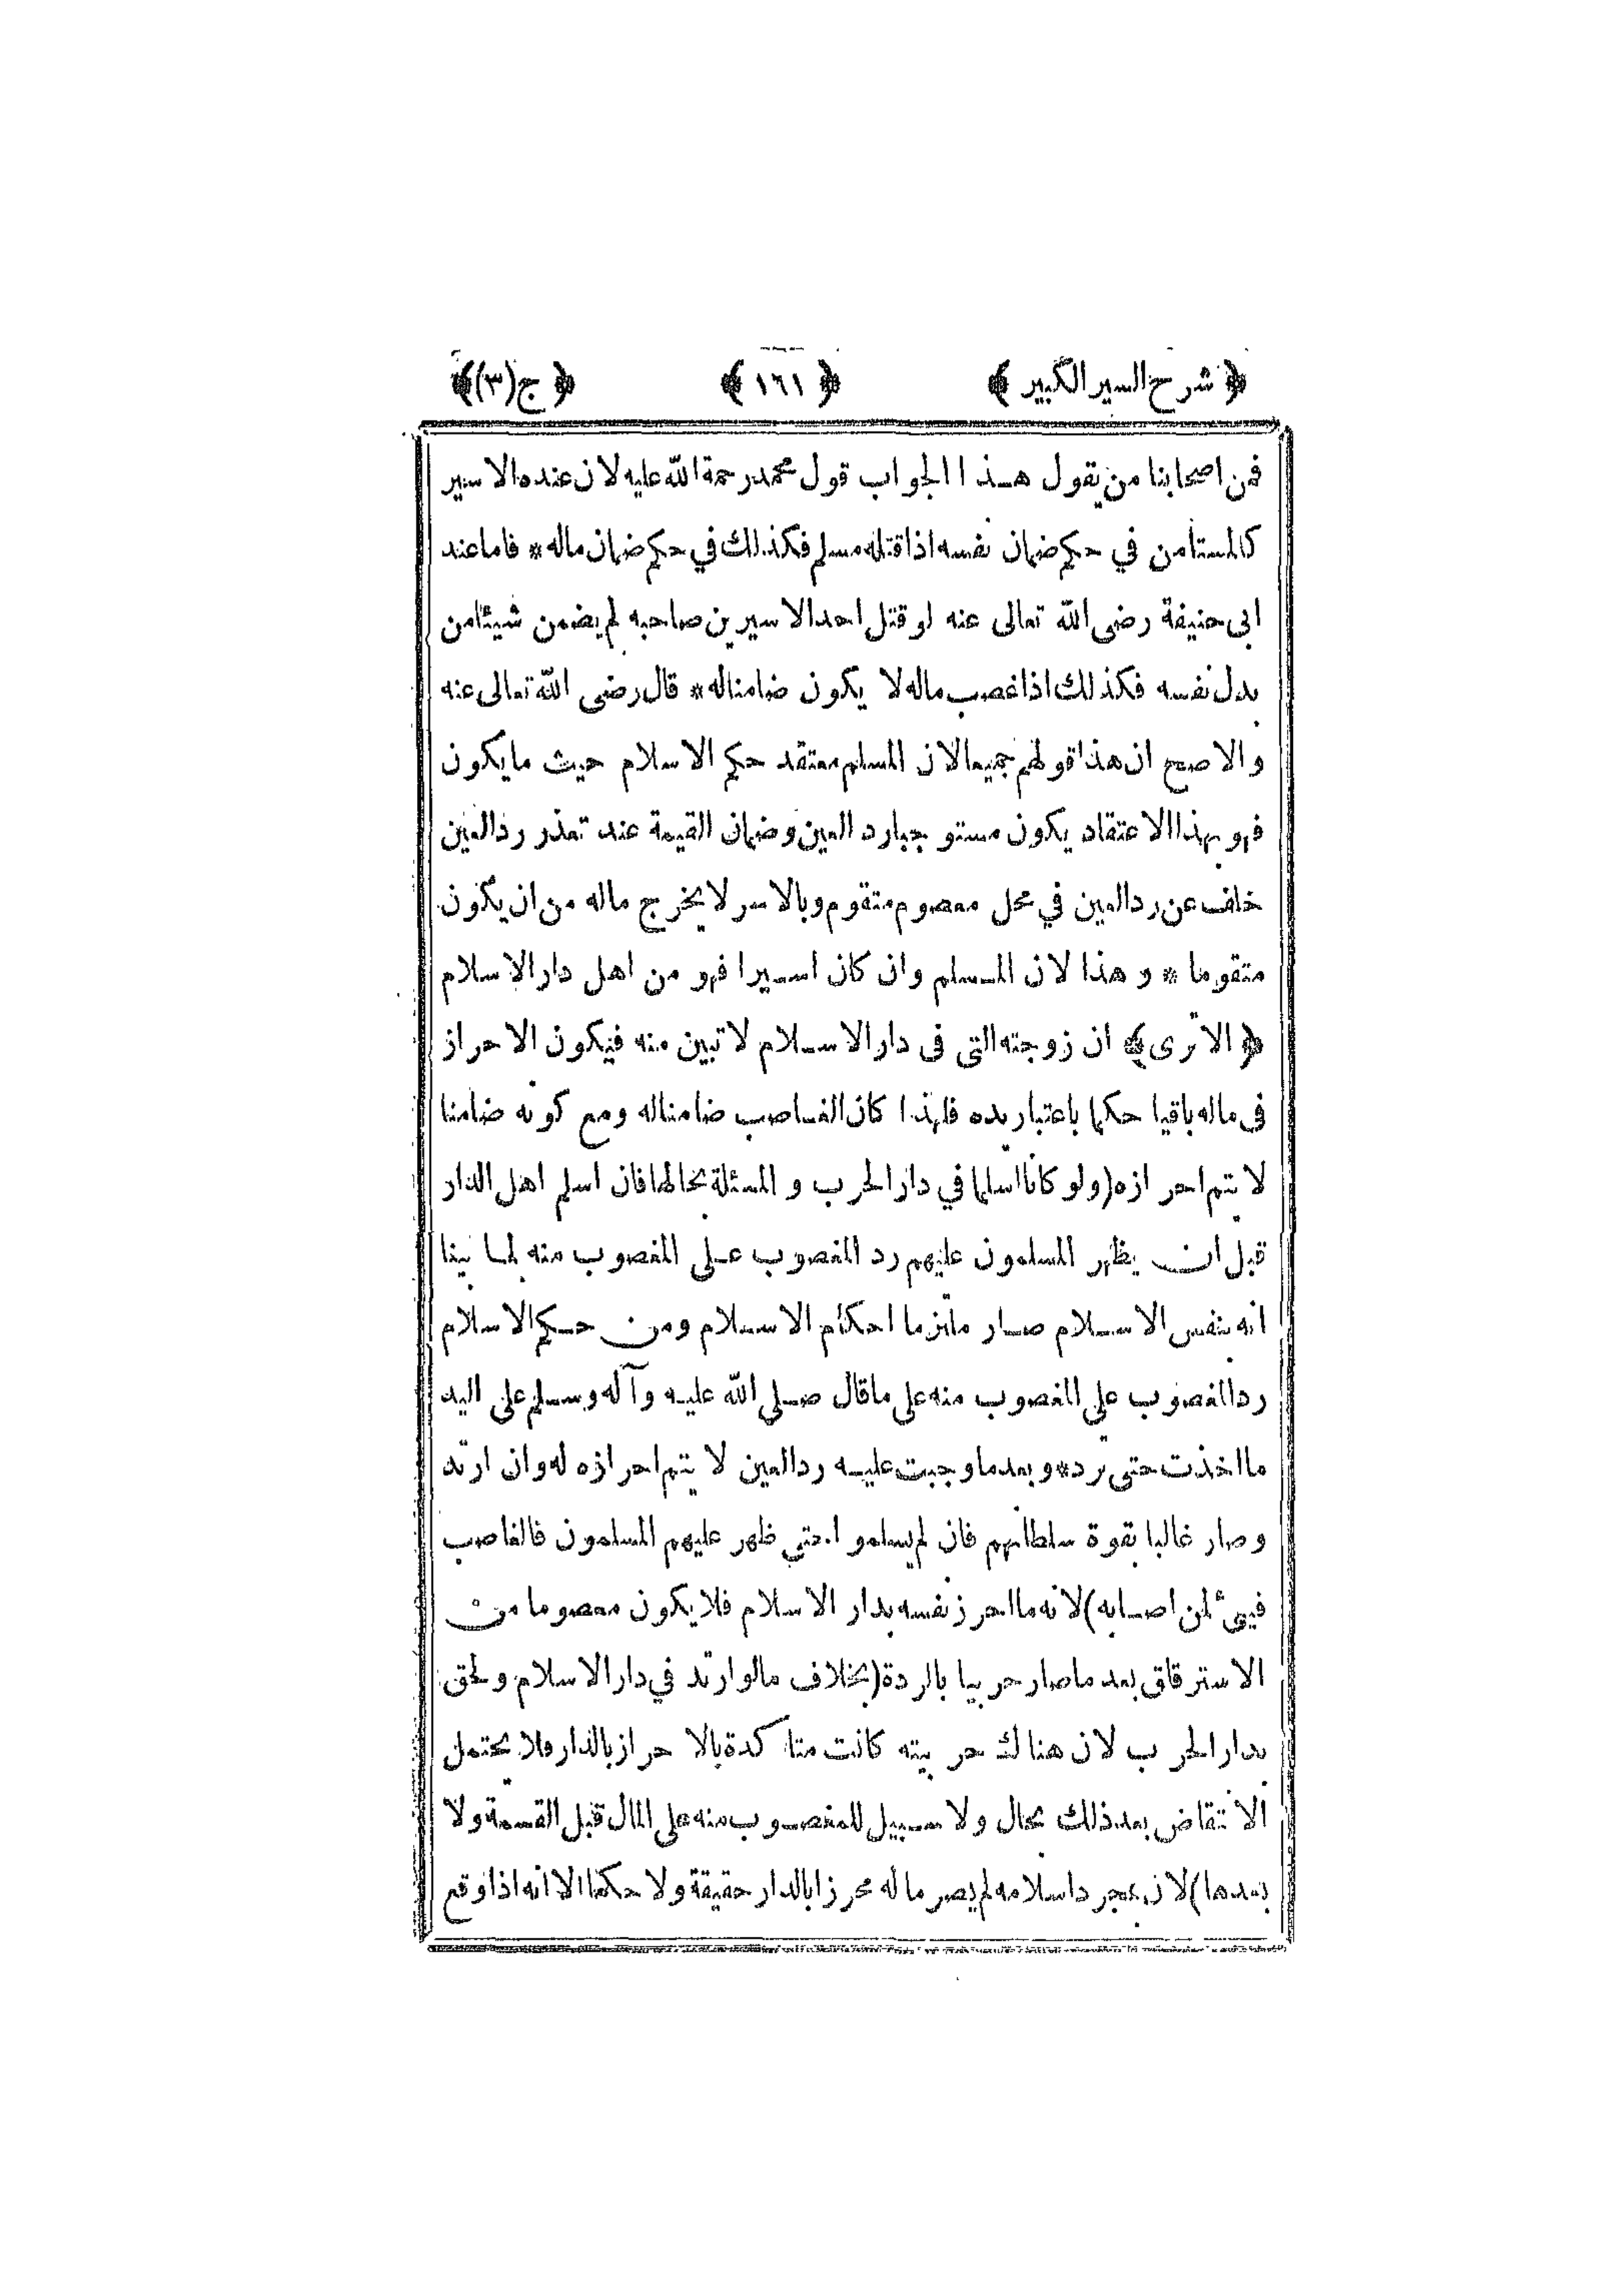 ﴿ شرح السير الكبير ﴾ ﴿ ١٦١ ﴾ ﴿ ج (٣) ﴾
فمن اصحابنا من يقول هذا الجواب قول محمد رحمة الله عليه لان عنده الاسير
كالمستأمن في حكم ضمان نفسه اذا قتله مسلم فكذلك في حكم ضمان ماله * فاما عند
ابى حنيفة رضى الله تعالى عنه لو قتل احد الاسيرين صاحبه لم يضمن شيئا من
بدل نفسه فكذلك اذا غصب ماله لا يكون ضامنا له * قال رضى الله تعالى عنه
والاصح ان هذا قولهم جميعا لان المسلم معتقد حكم الاسلام حيث ما يكون
فهو بهذا الاعتقاد يكون مستوجبا رد العين وضمان القيمة عند تعذر رد العين
خلف عن رد العين في محل معصوم متقوم وبالاسر لا يخرج ماله من ان يكون
متقوما * وهذا لان المسلم وان كان اسيرا فهو من اهل دار الاسلام
﴿ الا ترى ﴾ ان زوجته التى فى دار الاسلام لا تبين منه فيكون الاحراز
فى ماله باقيا حكما باعتبار يده فلهذا كان الغاصب ضامنا له ومع كونه ضامنا
لا يتم احرازه (ولو كانا اسلما في دار الحرب و المسئلة بحالها فان اسلم اهل الدار
قبل ان يظهر المسلمون عليهم رد المغصوب على المغصوب منه لما بينا
انه بنفس الاسلام صار ملتزما احكام الاسلام ومن حكم الاسلام
رد المغصوب على المغصوب منه على ما قال صلى الله عليه وآله وسلم على اليد
ما اخذت حتى ترد * و بعد ما وجبت عليه رد العين لا يتم احرازه له وان ارتد
وصار غالبا بقوة سلطانهم فان لم يسلموا حتي ظهر عليهم المسلمون فالغاصب
فيئ لمن اصابه) لانه ما احرز نفسه بدار الاسلام فلا يكون معصوما من
الاسترقاق بعد ما صار حربيا بالردة (بخلاف ما لو ارتد في دار الاسلام ولحق
بدار الحرب لان هناك حريته كانت متأكدة بالاحراز بالدار فلا يحتمل
الانتقاض بعد ذلك بحال ولا سبيل للمغصوب منه على المال قبل القسمة ولا
بعدها) لان بمجرد اسلامه لم يصر ماله محرزا بالدار حقيقة ولا حكما الا انه اذا وقع